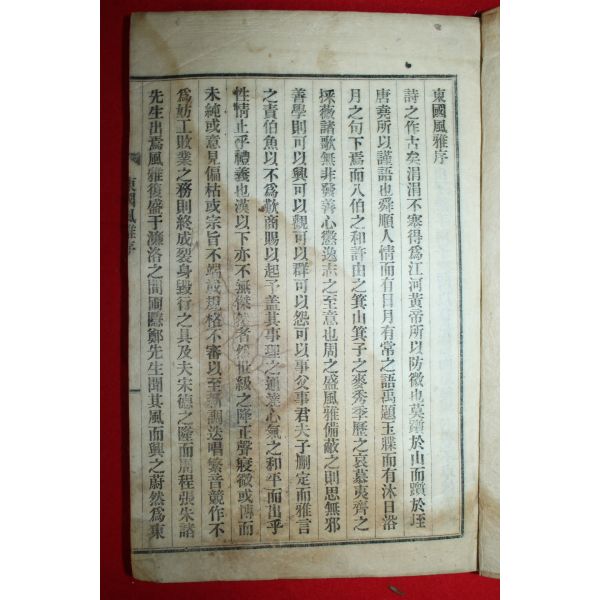 東國風雅序
詩之作古矣涓涓不塞得爲江河黃帝所以防微也莫躓於山而躓於垤
唐堯所以謹語也舜順人情而有日月有常之語禹題玉牒而有沐日浴
月之句下焉而八伯之和許由之箕山箕子之麥秀季歷之哀慕夷齊之
採薇諸歌無非發善心懲逸志之至意也周之盛風雅備蔽之則思無邪
善學則可以興可以觀可以群可以怨可以事父事君夫子刪定而雅言
之責伯魚以不爲歎商賜以起予盖其事理之通達心氣之和平而出乎
性情止乎禮義也漢以下亦不無傑然者然世級之降正聲寢微或慱而
未純或意見偏枯或宗旨不端或規格不審以至新調迭唱繁音競作不
爲妨工敗業之務則終成裂身毁行之具及夫宋德之隆而周程張朱諸
先生出焉風雅復盛于濂洛之間圃隱鄭先生聞其風而興之蔚然爲東
東國風雅序